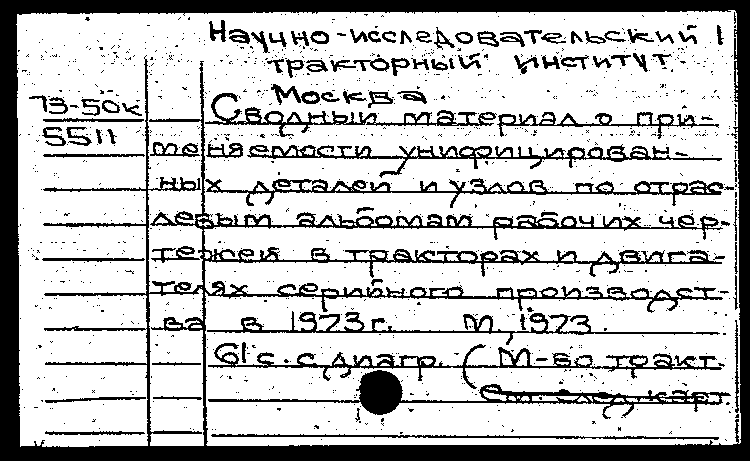 Научно-исследовательский 1
тракторный институт.
Москва.
73-50к Сводный материал о при-
5511 меняемости унифицирован-
ных деталей и узлов по отрас-
левым альбомам рабочих чер-
тежей в тракторах и двига-
телях серийного производст-
ва в 1973 г. М, 1973.
61 с. с диагр. (М-во тракт.
См. след. карт.